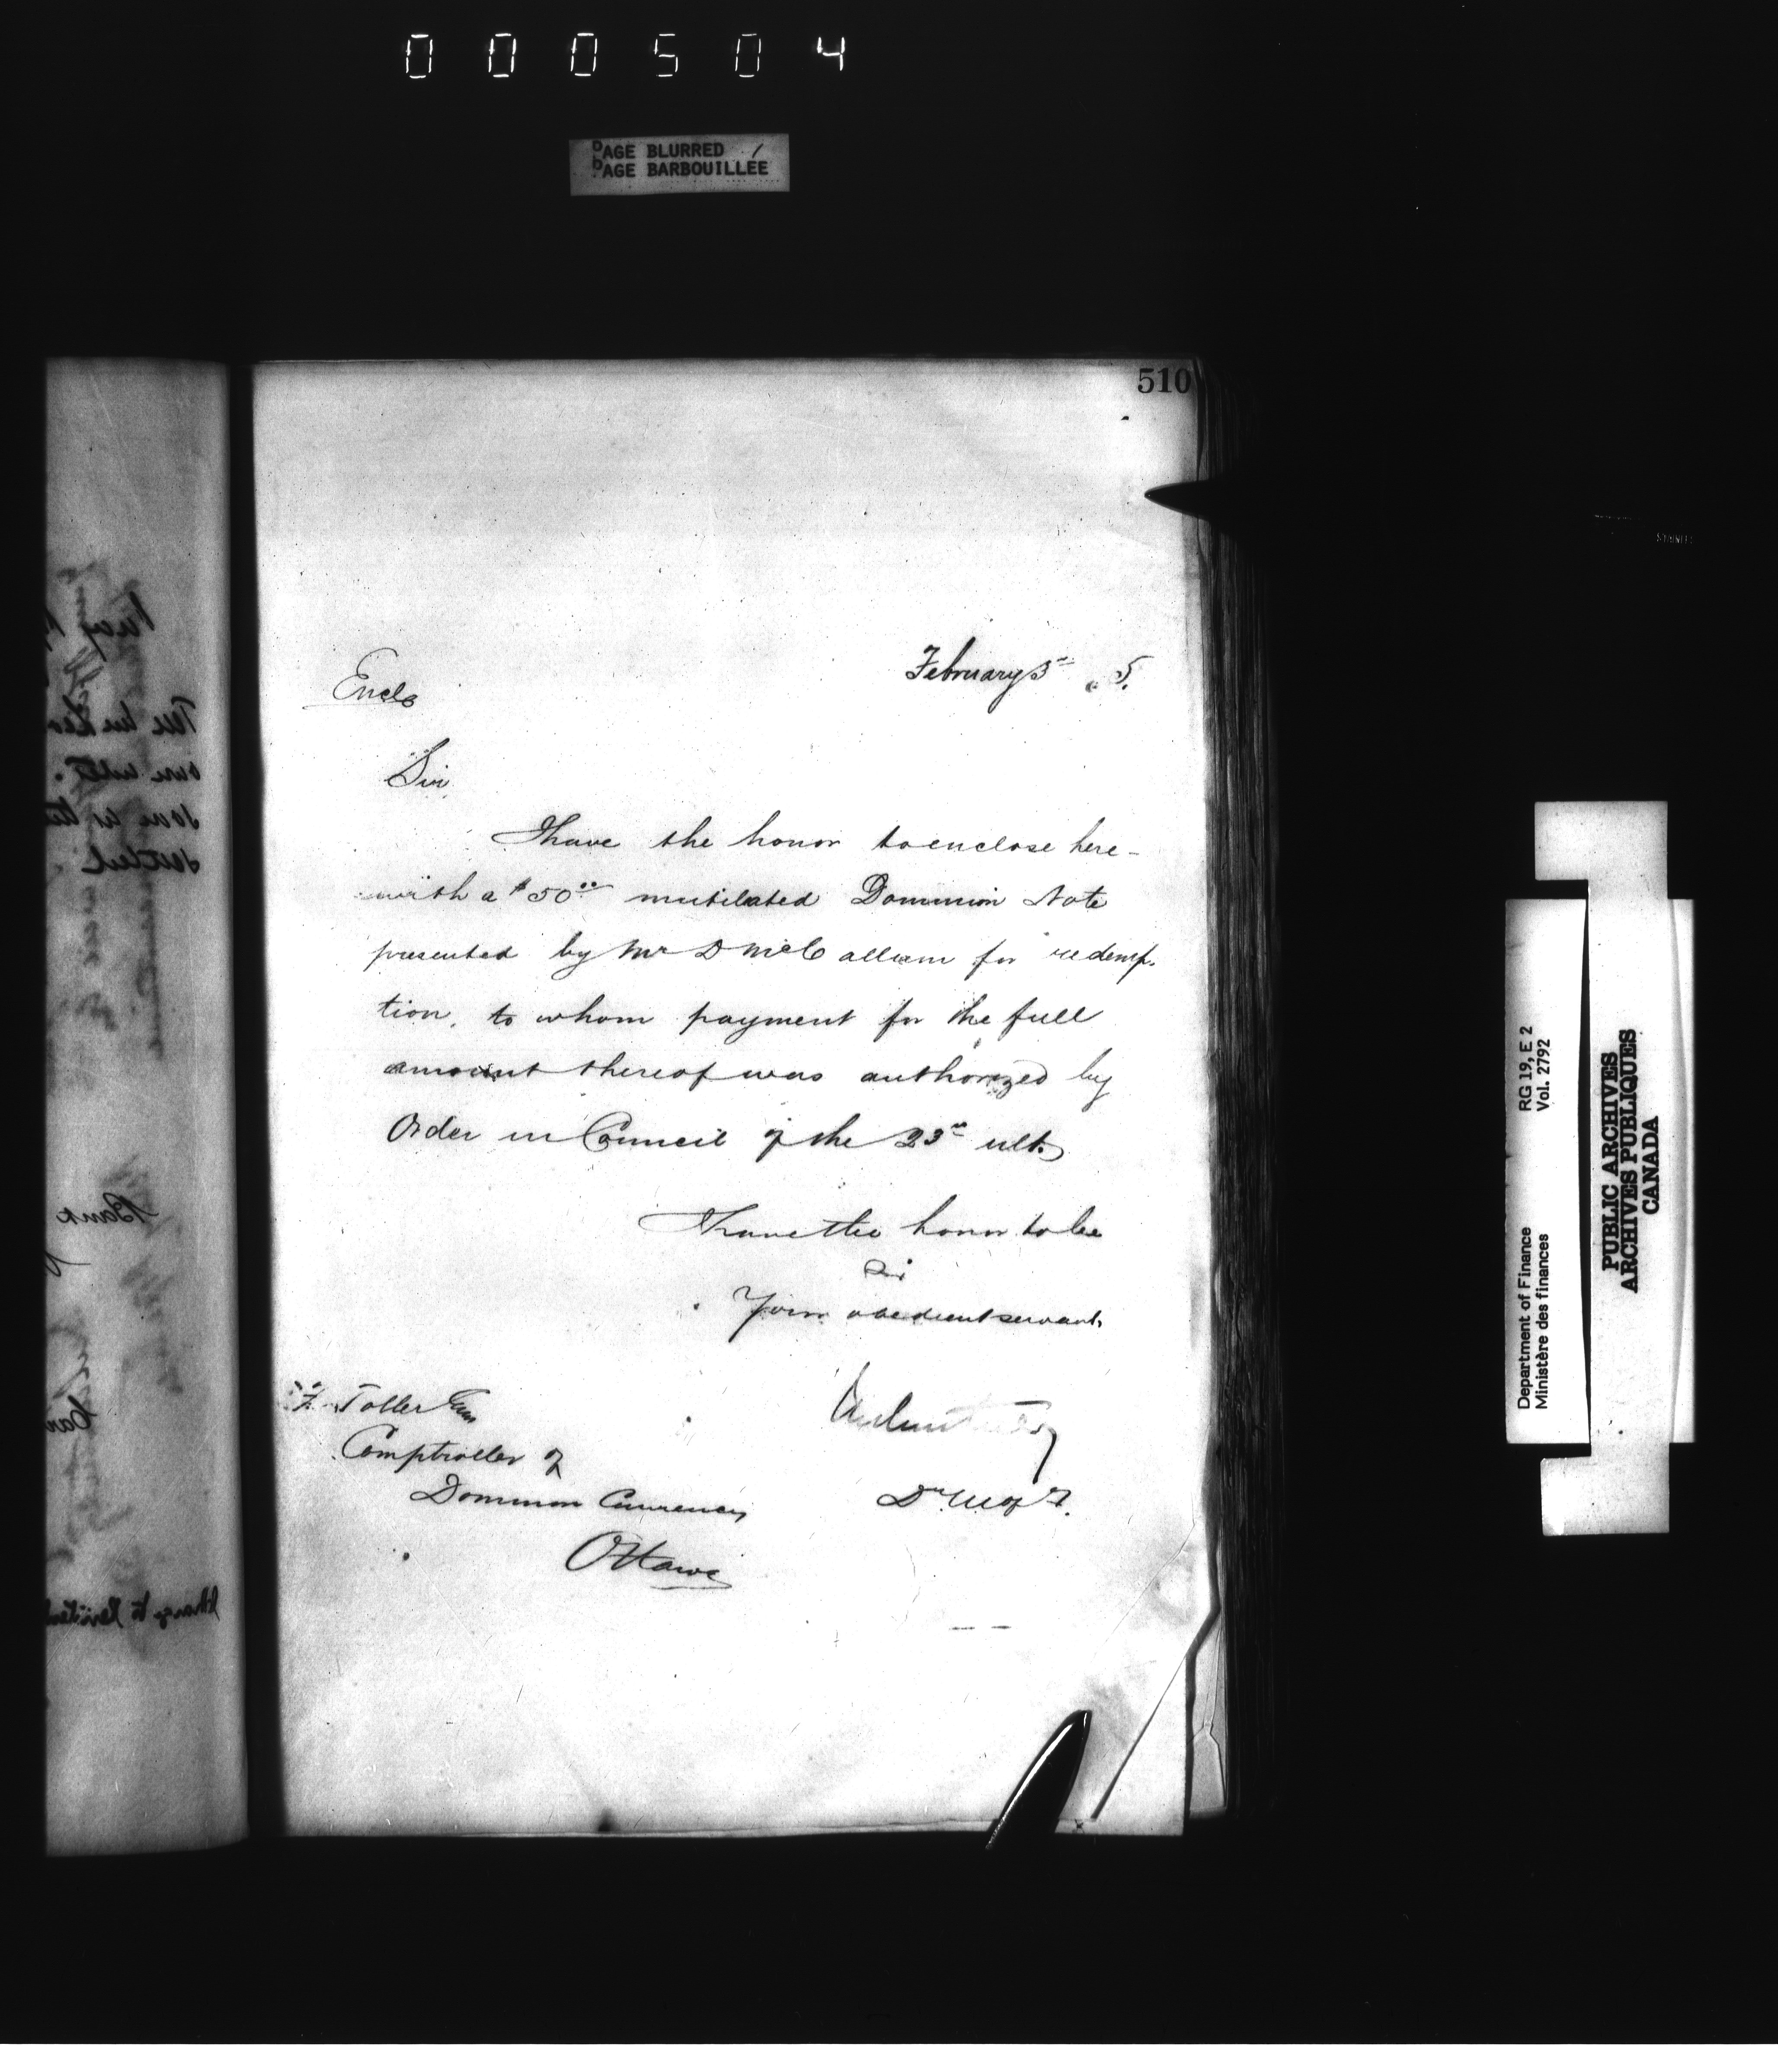 000504
PAGE BLURRED
PAGE BARBOUILLÉE
510
February 3rd 5.
Encl
Sir
I have the honor to enclose here-
with a $50.00 mutilated Dominion Note
presented by Mr D McCallum for redemp-
tion, to whom payment for the full
amount thereof was authorized by
Order in Council of the 23rd ulto
I have the honor to be
Sir
Your obedient servant,
Toller Esq
Comptroller of
Dominion Currency
Ottawa
D.M. of F.
Department of Finance RG 19, E 2
Ministère des finances Vol. 2792
PUBLIC ARCHIVES
ARCHIVES PUBLIQUES
CANADA